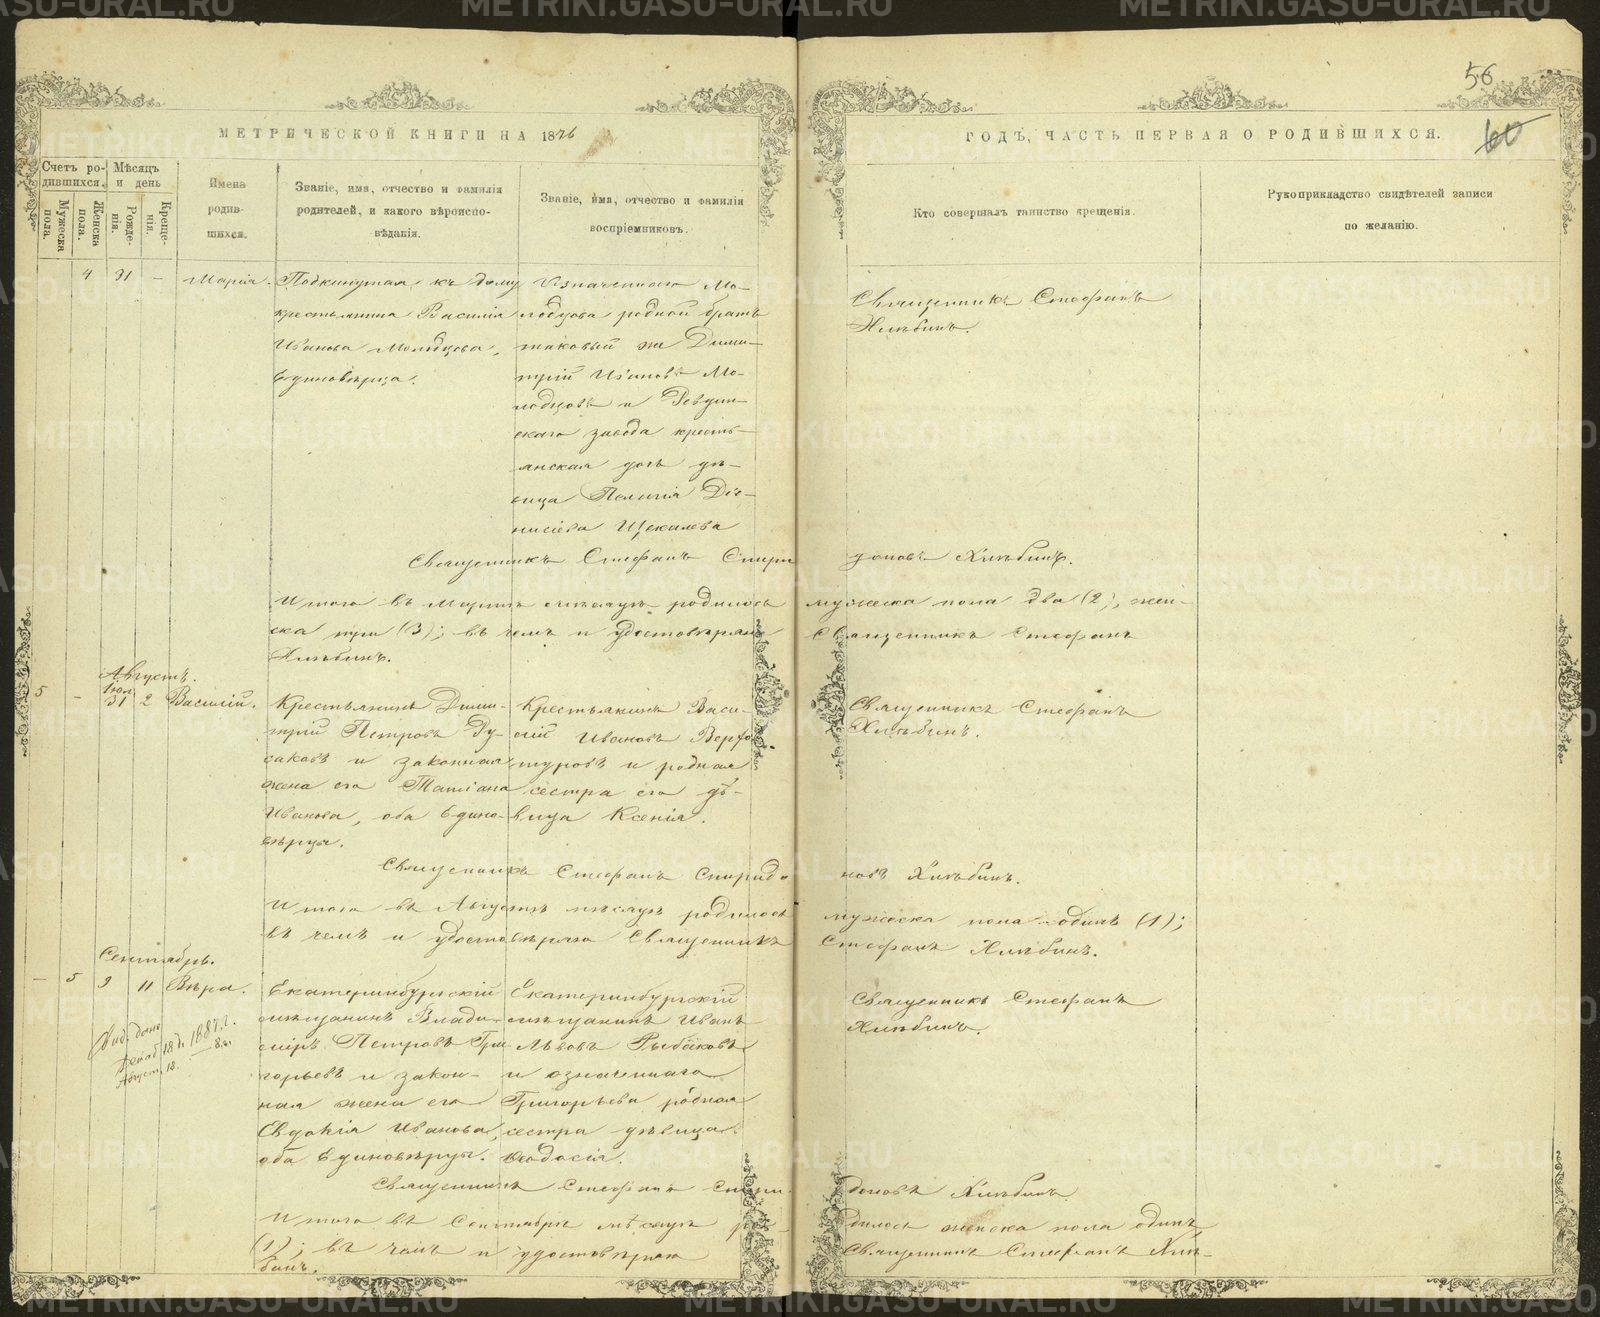 56
60
МЕТРИЧЕСКОЙ КНИГИ НА 1876
ГОДЪ, ЧАСТЬ ПЕРВАЯ О РОДИВШИХСЯ.
Счетъ родившихся.
Мужеска пола.
Женска пола.
Мѣсяцъ и день
Рожденія.
Крещенія.
Имена родившихся.
Званіе, имя, отчество и фамилія
родителей, и какого вѣроиспо-
вѣданія.
Званіе, имя, отчество и фамилія
воспріемниковъ.
Кто совершалъ таинство крещенія.
Рукоприкладство свидѣтелей записи
по желанію.
4 31 – Марія.
Подкинутая къ дому
крестьянина Василія
Иванова Молодцова,
Единовѣрца.
Означеннаго Мо-
лодцова родной братъ
таковый же Дими-
трій Ивановъ Мо-
лодцовъ и Ревдин-
скаго завода кресть-
янская дочь дѣ-
вица Пелагія Діо-
нисіева Щекалева
Священникъ Стефанъ
Хлѣбинъ.
Священникъ Стефанъ Спиридоновъ Хлѣбинъ.
Итого въ мѣсяцѣ родилось мужеска пола два (2), жен-
ска три (3); въ чемъ и удостовѣряю Священникъ Стефанъ
Хлѣбинъ.
Августъ.
5 – Іюл. 31 2 Василій.
Крестьянинъ Дими-
трій Петровъ Ру-
саковъ и законная
жена его Татіана
Иванова, оба Едино-
вѣрцы.
Крестьянинъ Васи-
лій Ивановъ Верхо-
туровъ и родная
сестра его дѣ-
вица Ксенія.
Священникъ Стефанъ
Хлѣбинъ.
Священникъ Стефанъ Спиридоновъ Хлѣбинъ.
Итого въ Августѣ мѣсяцѣ родилось мужеска пола одинъ (1);
въ чемъ и удостовѣряю Священникъ Стефанъ Хлѣбинъ.
Сентябрь.
– 5 9 11 Вѣра.
Екатеринбургскій
мѣщанинъ Влади-
міръ Петровъ Гри-
горьевъ и закон-
ная жена его
Евдокія Иванова,
оба Единовѣрцы.
Екатеринбургскій
мѣщанинъ Иванъ
Львовъ Рыбаковъ
и означеннаго
Григорьева родная
сестра дѣвица
Ѳеодосія.
Священникъ Стефанъ
Хлѣбинъ.
18 1887 г.
Август. 18.
Священникъ Стефанъ Спиридоновъ Хлѣбинъ
Итого въ Сентябрѣ мѣсяцѣ родилось женска пола одинъ
(1); въ чемъ и удостовѣряю Священникъ Стефанъ Хлѣ-
бинъ.
METRIKI.GASO-URAL.RU